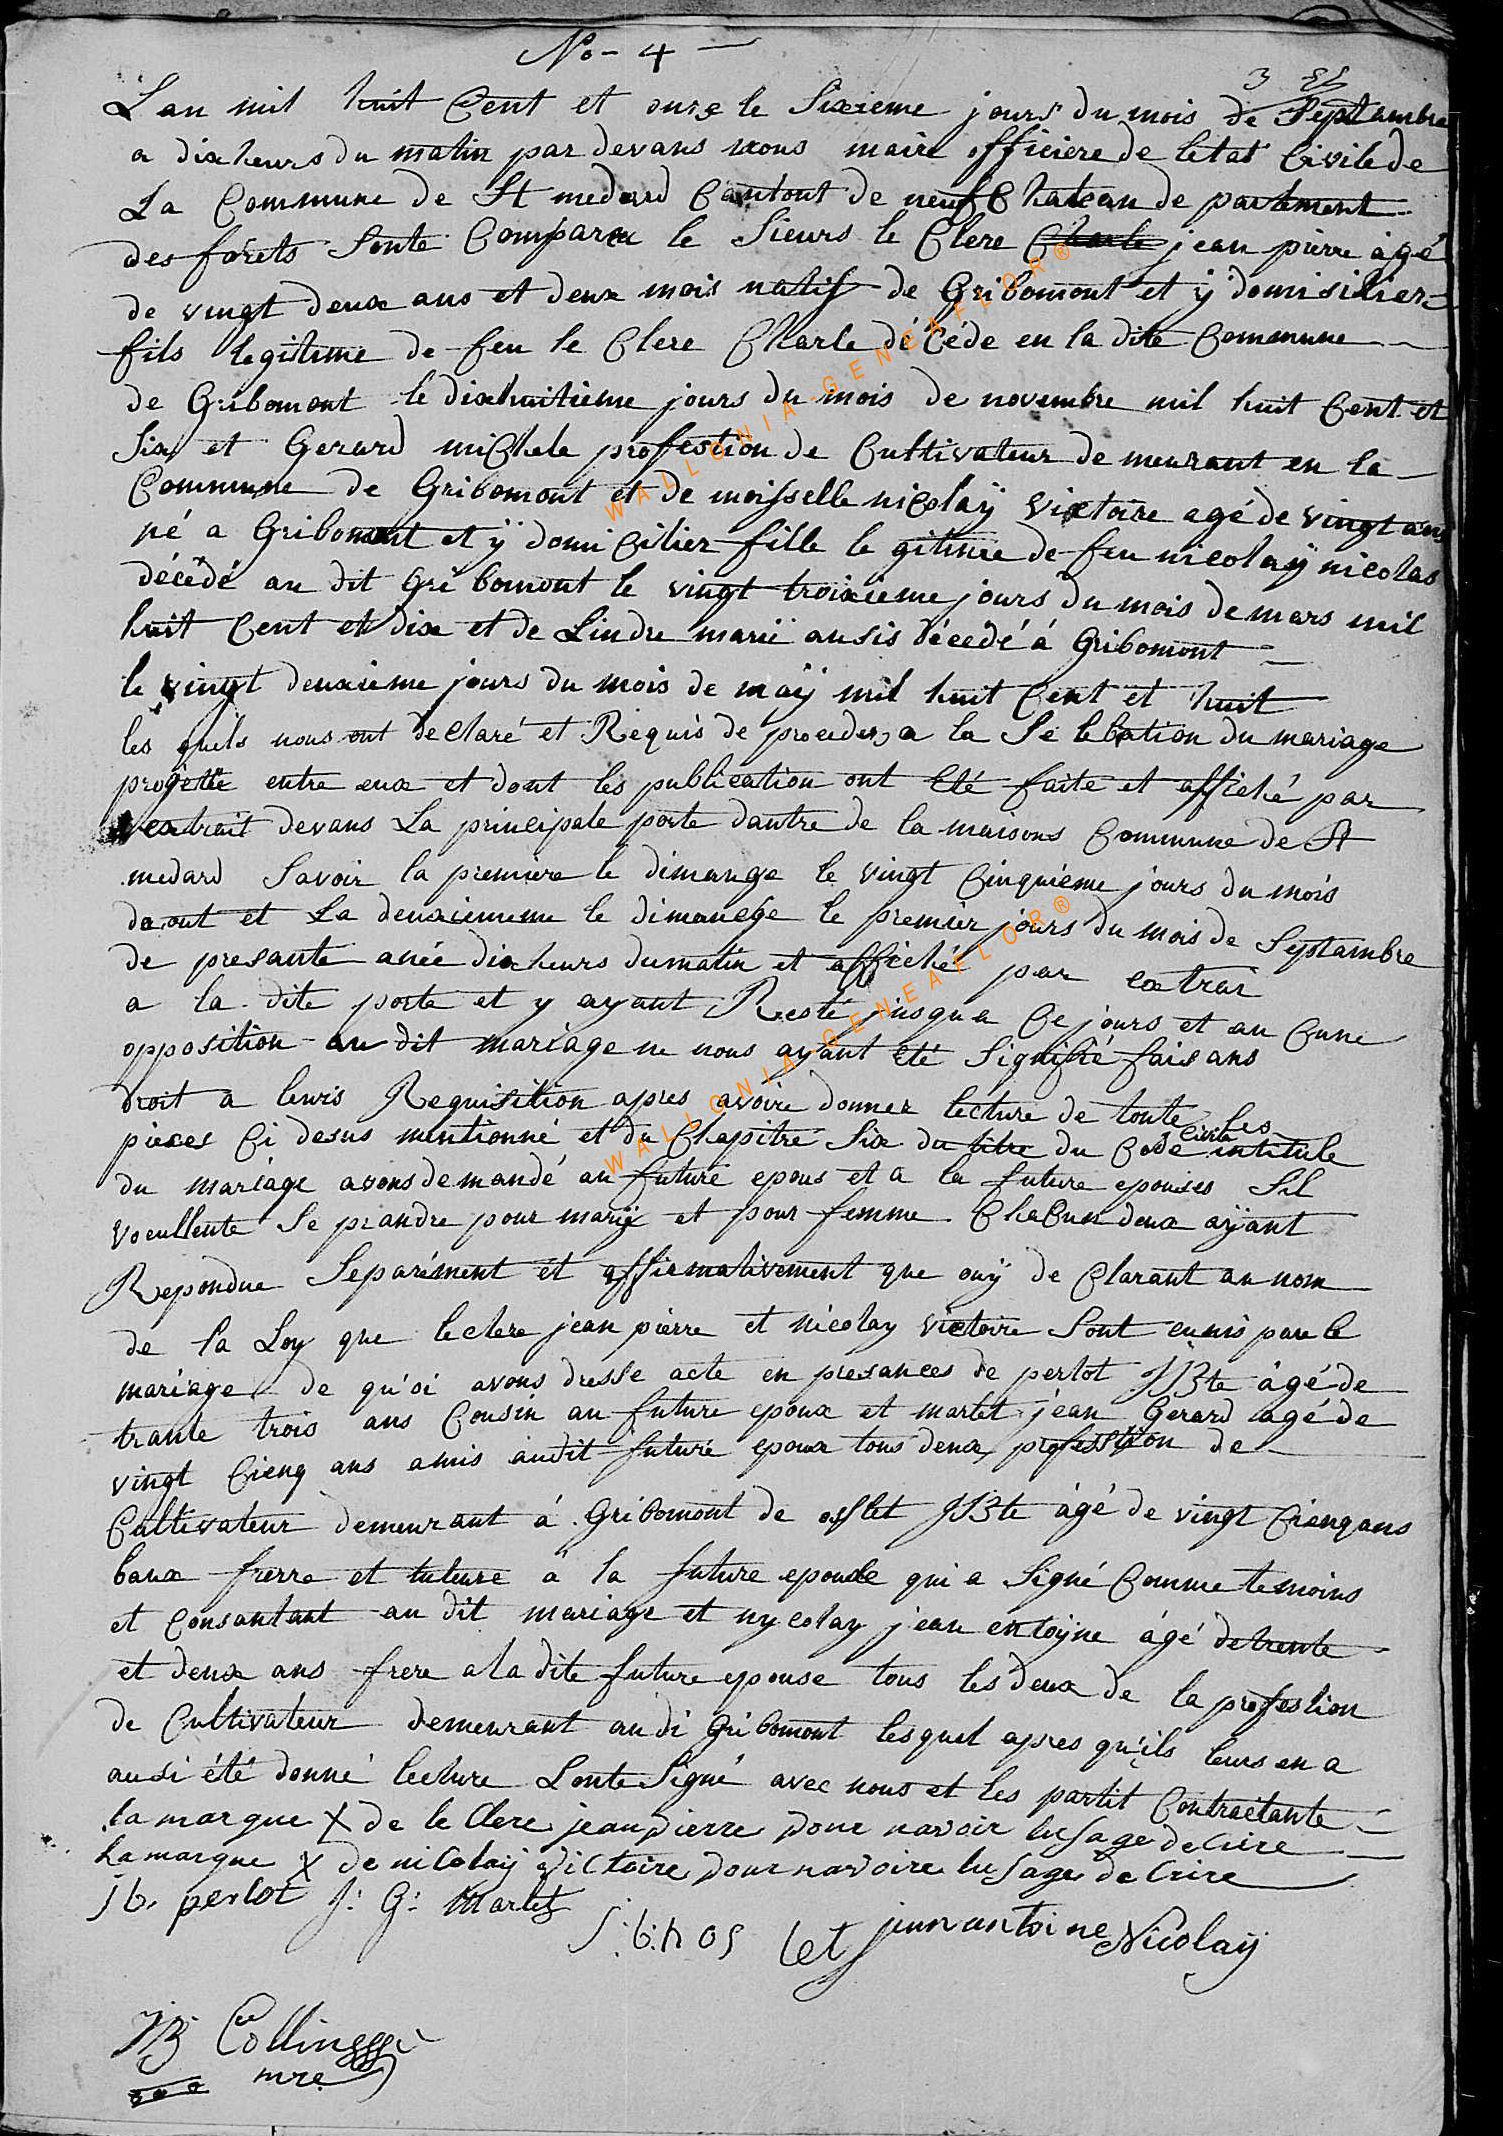 No - 4
3
L'an mil huit Cent et onze le Sixieme jours du mois de Septambre
a dix heurs du matin par devans nous maire officiere de letat Civile de
La Commune de St medard Cantont de neufChateau de partement
des forêts Sonte Comparu le Sieurs le Clere jean pierre âgé
de vingt deux ans et deux mois natif de Gribomont et ÿ domisilier
fils legitime de feu le Clere Charle décéde en la dite Commune
de Gribomont le dixhuitième jours du mois de novembre mil huit Cent et
Six et Gerard miChele profestion de Cultivateur demeurant en la
Commune de Gribomont et de moisselle nicolaÿ Victoire agé de vingt ans
né a Gribomont et ÿ domiCilier fille le gitime de feu nicolaÿ nicolas
décédé au dit Gribomont le vingt troixieme jours du mois de mars mil
huit Cent et dix et de Lindre marië ausis décédé á Gribomont
le vingt deuxieme jours du mois de maÿ mil huit Cent et huit
les quels nous ont declaré et Requis de proceder a la Se lebration du mariage
progette entre eux et dont les publication ont Eté faite et affiché par
extrait devans La principale porte dantre de la maisons Commune de St
medard Savoir la premiere le dimange le vingt Cinquiéme jours du mois
daout et La deuxiememe le dimanche le premier jours du mois de Septambre
de presante anée dix heurs du matin et affiché par extrai
a la dite porte et y ayant Resté jusqu a Ce jours et au Cune
opposition au dit mariage ne nous ayant eté Signifié faisans
droit a leurs Requisition apres avoire donner lecture de toute les
pieces Ci desus mentionné et du Chapitre Six du titre du Code Civile intitule
du mariage avons demandé au future epous et a la future epouses Sil
voeullente Se prandre pour mariÿ et pour femme Chacun deux aÿant
Repondue Separément et affirmativement que ouÿ de Clarant au nom
de la Loy que leclere jean pierre et nicolay victoire Sont eunis pare le
mariage de qu'oi avons dresse acte en presances de perlot JBte âgé de
trante trois ans Cousin au future epoux et martet jean Gerard agé de
vingt Cienq ans amis audit future epoux tous deux profession de
Cultivateur demeurant á Gribomont de oslet JBte âgé de vingt Cienq ans
baux frerre et tuteure á la future epouse qui a Signé Comme temoins
et Consantant au dit mariage et nycolay jean entoÿne âgé de trente
et deux ans frere a la dite future epouse tous les deux de la profestion
de Cultivateur demeurant au di Gribomont lesquel apres qu'ils leurs en a
ausi été donné lecture Sonte Signé avec nous et les partit Contractante
la marque X de le Clere jean pierre pour navoir lusage decrire
La marque X de nicolaÿ victoire pour navoire lusage decrire
J b. perlot J: G: Martet
J: b: hoslet jean antoine Nicolaÿ
JB Collin
mre